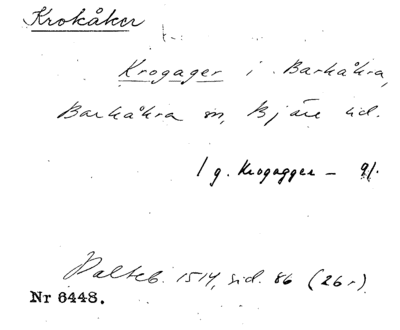 Krokåker
Krogager i Barkåkra,
Barkåkra sn, Bjäre hd.
1 g. Krogagger – 9/.
Palteb. 1514, sid. 86 (26r)
Nr 6448.